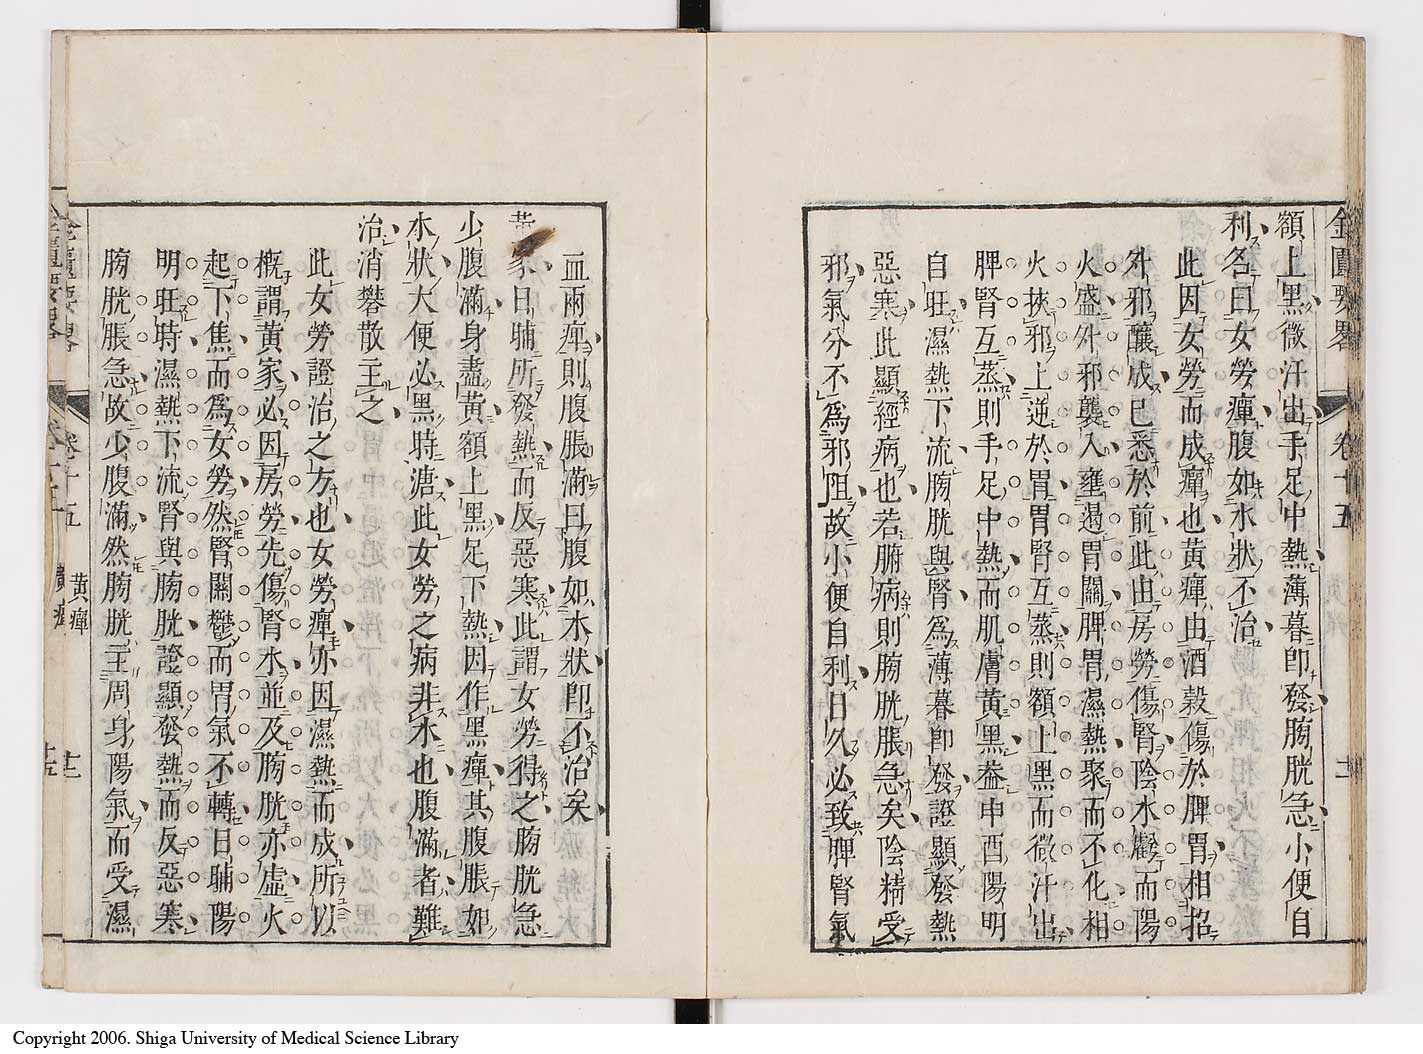 金匱要畧 卷十五 十二
額上黑微汗出手足中熱薄暮即發膀胱急小便自
利名曰女勞疸腹如水狀不治
此因女勞而成疸也黃疸由酒穀傷於脾胃相招
外邪釀成已悉於前此由房勞傷腎陰水虧而陽
火盛外邪襲入壅遏胃關脾胃濕熱聚而不化相
火挾邪上逆於胃胃腎互蒸則額上黑而微汗出
脾腎互蒸則手足中熱而肌膚黃黑葢申酉陽明
自旺濕熱下流膀胱與腎爲薄暮即發證顯發熱
惡寒此顯經病也若腑病則膀胱脹急矣陰精受
邪氣分不爲邪阻故小便自利日久必致脾腎氣
血兩瘅則腹脹滿曰腹如水狀即不治矣
家日晡所發熱而反惡寒此謂女勞得之膀胱急
少腹滿身盡黃額上黑足下熱因作黑疸其腹脹如
水狀大便必黑時溏此女勞之病非水也腹滿者難
治消礬散主之
此女勞證治之方也女勞疸亦因濕熱而成所以
概謂黃家必因房勞先傷腎水並及膀胱亦虛火
起下焦而爲女勞然腎關鬱而胃氣不轉日晡陽
明旺時濕熱下流腎與膀胱證顯發熱而反惡寒
膀胱脹急故少腹滿然膀胱主周身陽氣而受濕
金匱要畧 卷十五 黃疸 十二
Copyright 2006. Shiga University of Medical Science Library